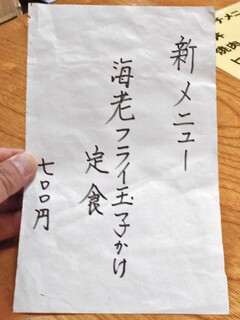 新メニュー
海老フライ玉子かけ
定食
七〇〇円